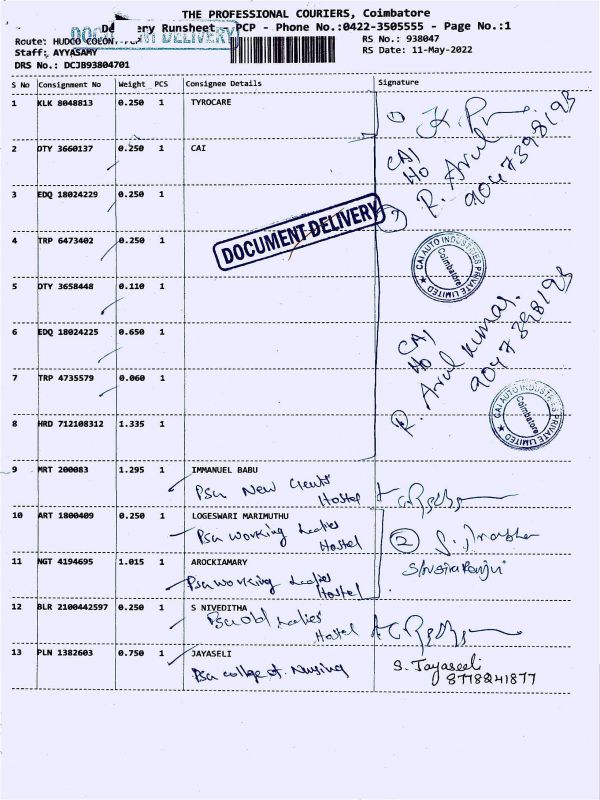 THE PROFESSIONAL COURIERS, Coimbatore
Delivery Runsheet - PCP - Phone No.:0422-3505555 - Page No.:1
DOCUMENT DELIVERY
Route: HUDCO COLONY
Staff: AYYASAMY
DRS No.: DCJB93804701
RS No.: 938047
RS Date: 11-May-2022
S No Consignment No Weight PCS Consignee Details Signature
1 KLK 8048813 0.250 1 TYROCARE
2 OTY 3660137 0.250 1 CAI
CAI
HO
R. Arul
9047398193
3 EDQ 18024229 0.250 1
DOCUMENT DELIVERY
4 TRP 6473402 0.250 1
CAI AUTO INDUSTRIES PRIVATE LIMITED
Coimbatore
5 OTY 3658448 0.110 1
6 EDQ 18024225 0.650 1
CAI
HO
R. Arul Kumar.
9047398193
7 TRP 4735579 0.060 1
CAI AUTO INDUSTRIES PRIVATE LIMITED
Coimbatore
8 HRD 712108312 1.335 1
9 MRT 200083 1.295 1 IMMANUEL BABU
PSG New Gents
Hostel
10 ART 1800409 0.250 1 LOGESWARI MARIMUTHU
PSG working Ladies
Hostel
2
11 NGT 4194695 1.015 1 AROCKIAMARY
PSG working Ladies
Hostel
12 BLR 2100442597 0.250 1 S NIVEDITHA
PSG old Ladies
Hostel
13 PLN 1382603 0.750 1 JAYASELI
PSG college of. Nursing
S. Jayaseeli
8778841877